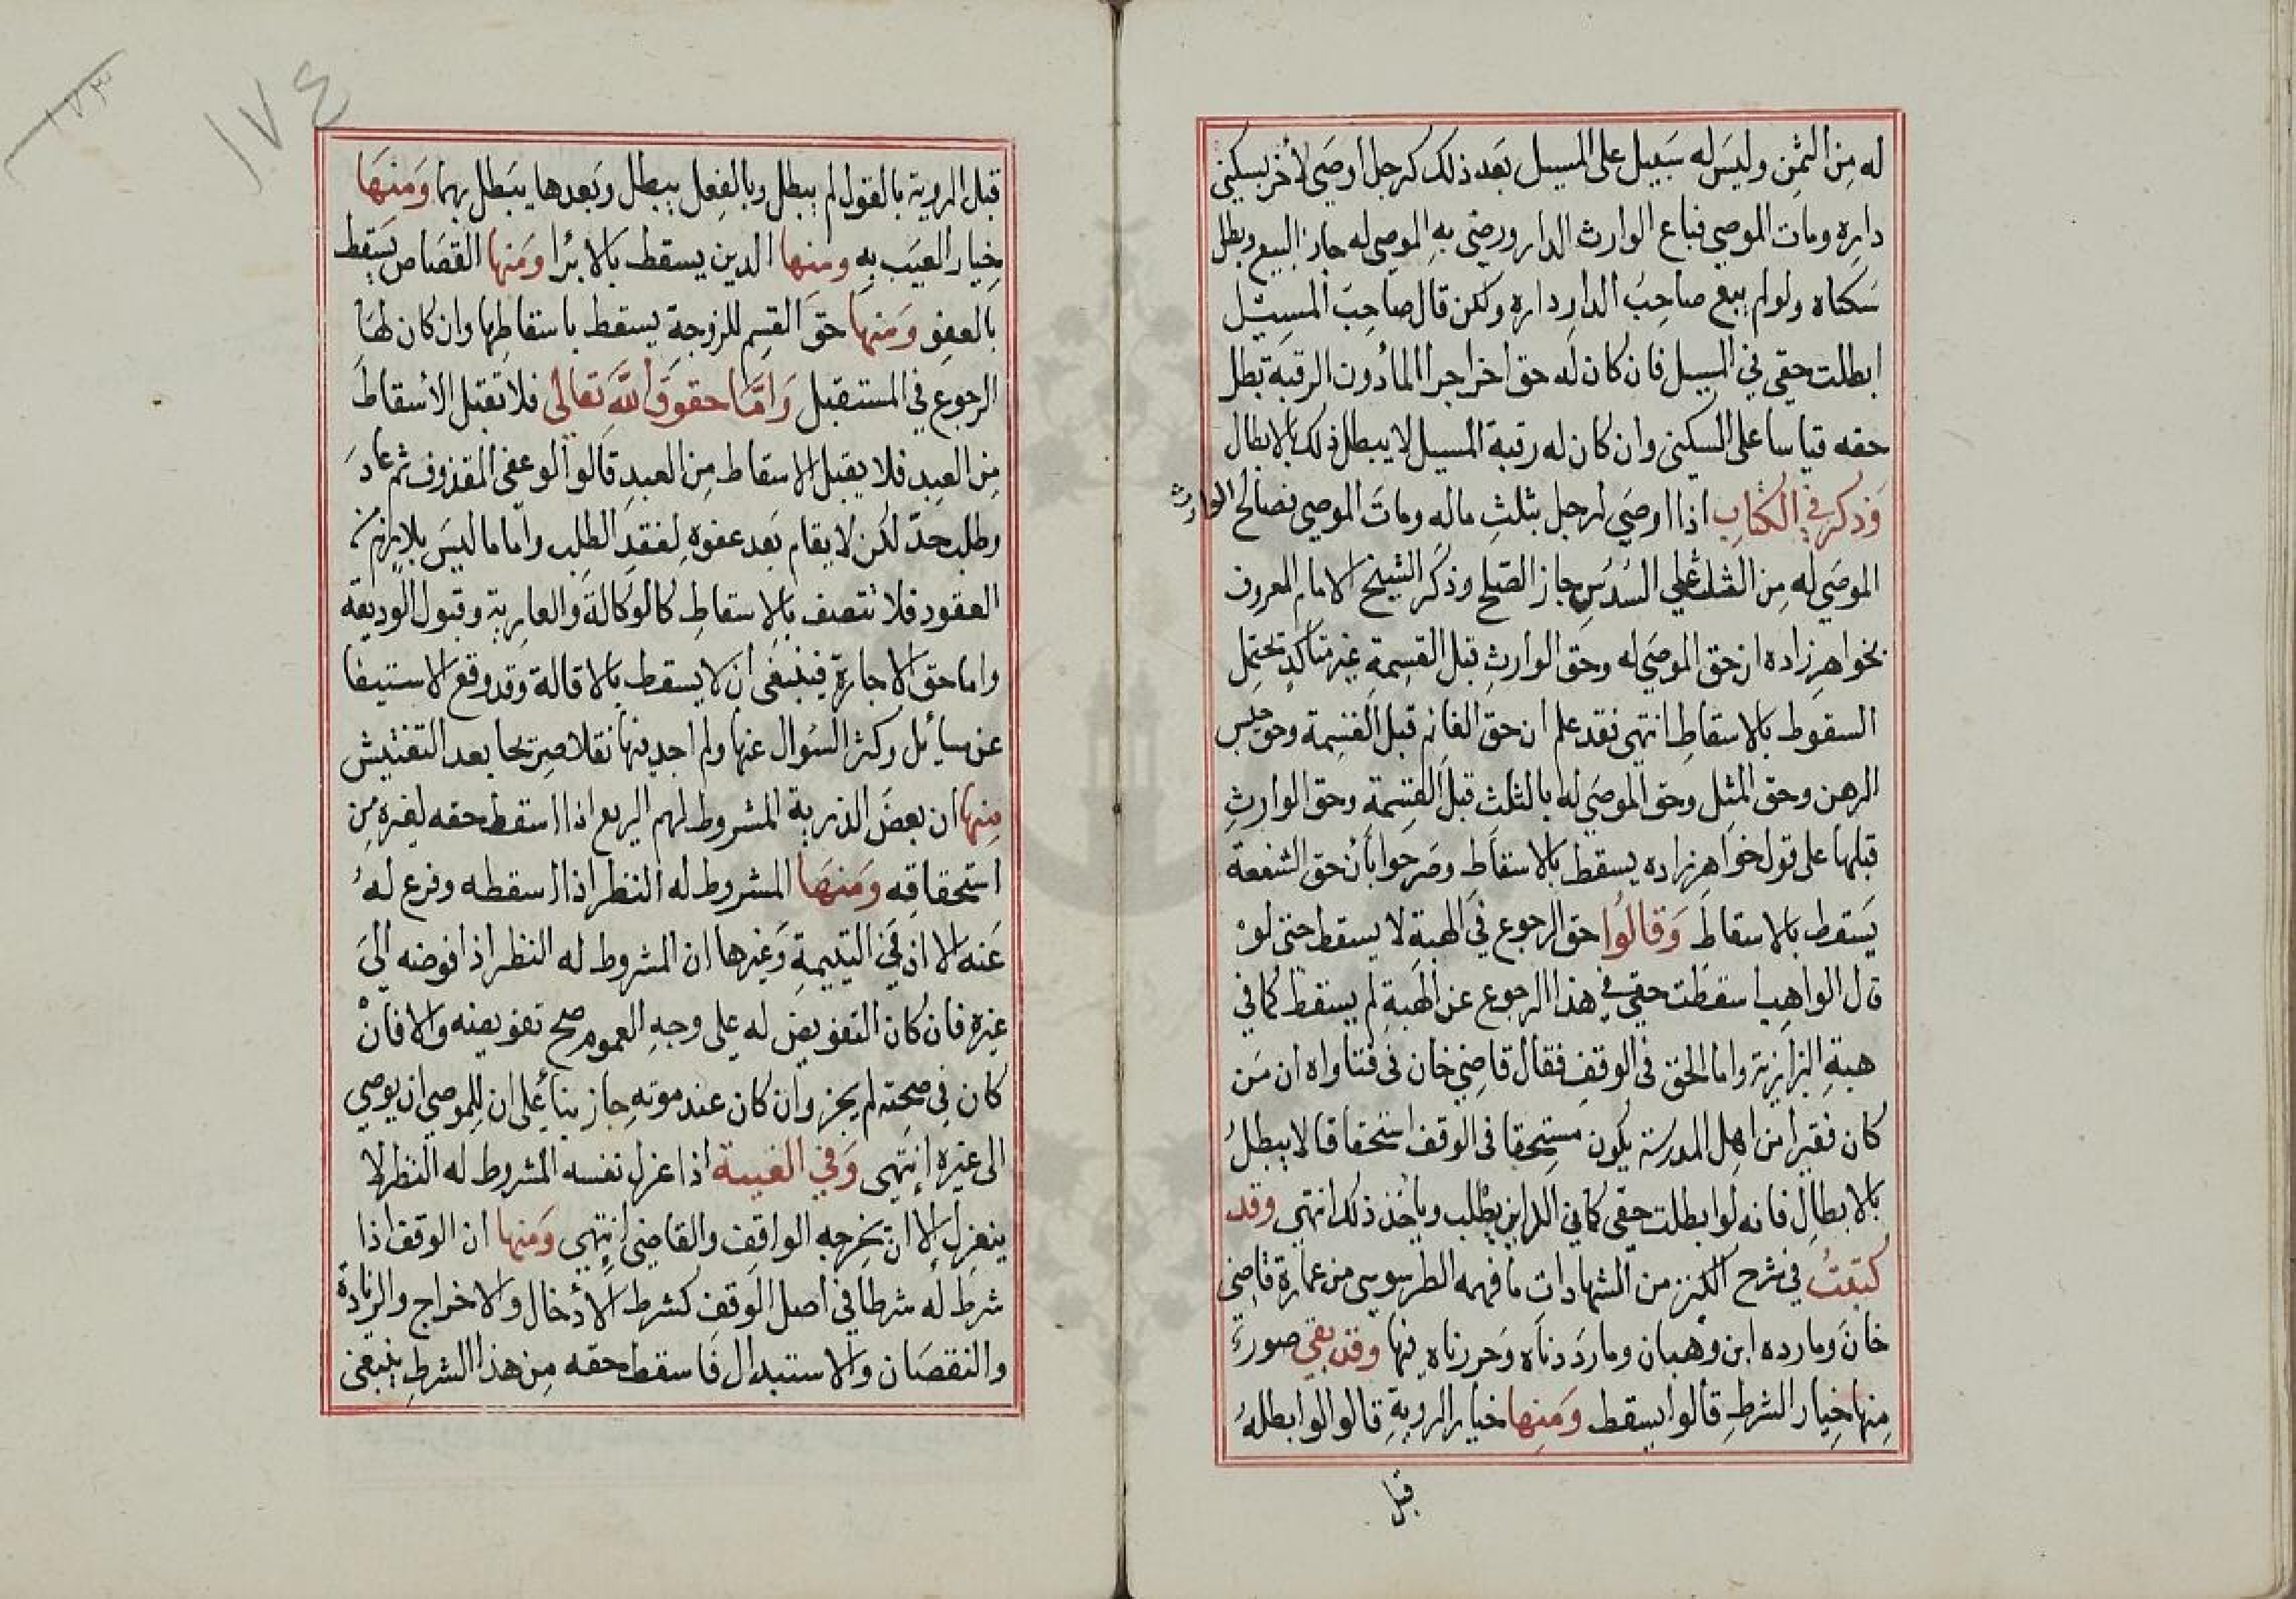 له من الثمن وليس له سبيل على المسيل بعد ذلك كرجل اوصى لأخر بسكنى
داره ومات الموصي فباع الوارث الدار ورضى به الموصى له جاز البيع وبطل
سكناه ولو لم يبع صاحب الدار داره ولكن قال صاحب المسيل
ابطلت حقي في المسيل فان كان له حق اجرا الما دون الرقبة بطل
حقه قياسا على السكنى وان كان له رقبة المسيل لا يبطل ذلك بالابطال
وذكر في الكتاب اذا اوصى لرجل بثلث ماله ومات الموصي فصالح الوارث
الموصى له من الثلث على السدس جاز الصلح وذكر الشيخ الامام المعروف
بخواهر زاده ان حق الموصى له وحق الوارث قبل القسمة غير متاكد يحتمل
السقوط بالاسقاط انتهى فقد علم ان حق الغانم قبل القسمة وحق حبس
الرهن وحق المثل وحق الموصى له بالثلث قبل القسمة وحق الوارث
قبلها على قول خواهر زاده يسقط بالاسقاط وصرحوا بأن حق الشفعة
يسقط بالاسقاط وقالوا حق الرجوع في الهبة لا يسقط حتى لو
قال الواهب اسقطت حقي في هذا الرجوع عن الهبة لم يسقط كما في
هبة البزازية واما الحق في الوقف فقال قاضي خان في فتاواه ان من
كان فقيرا من اهل المدرسة يكون مستحقا في الوقف استحقاقا لا يبطل
بالابطال فانه لو ابطلت حقي كان له ان يطلب وياخذ ذلك انتهى وقد
كتبت في شرح الكنز من الشهادات ما فهمه الطرسوسي من عبارة قاضي
خان وما رده ابن وهبان وما رددناه وحررناه فيها وقد بقي صور
منها خيار الشرط قالوا يسقط ومنها خيار الروية قالوا لو ابطله
قبل
١٧٣
١٧٤
قبل الروية بالقول لم يبطل وبالفعل يبطل وبعدها يبطل بهما ومنها
خيار العيب به ومنها الدين يسقط بالابرا ومنها القصاص يسقط
بالعفو ومنها حق القسم للزوجة يسقط باسقاطها وان كان لها
الرجوع في المستقبل واما حقوق الله تعالى فلا تقبل الاسقاط
من العبد فلا يقبل الاسقاط من العبد قالوا لو عفى المقذوف ثم عاد
وطلب حد لكن لا يقام بعد عفوه لفقد الطلب واما ما ليس بلازم من
العقود فلا تتصف بالاسقاط كالوكالة والعارية وقبول الوديعة
واما حق الاجارة فينبغي ان لا يسقط بالاقالة وقد وقع الاستيفا
عن مسائل وكثر السؤال عنها ولم اجد فيها نقلا صريحا بعد التفتيش
منها ان بعض الذرية المشروط لهم الريع اذا اسقط حقه لغيره من
استحقاقه ومنها المشروط له النظر اذا اسقطه وفرع له
عنه الا ان في اليتيمة وغيرها ان المشروط له النظر اذا فوضه الى
غيره فان كان التفويض له على وجه العموم صح تفويضه والا فان
كان في صحته لم يجز وان كان عند موته جاز بناء على ان للموصي ان يوصي
الى غيره انتهى وفي الغيبة اذا عزل نفسه المشروط له النظر لا
ينعزل الا ان يخرجه الواقف والقاضي انتهى ومنها ان الوقف اذا
شرط له شرطا في اصل الوقف كشرط الأدخال والاخراج والزيادة
والنقصان والاستبدال فاسقط حقه من هذا الشرط ينبغى